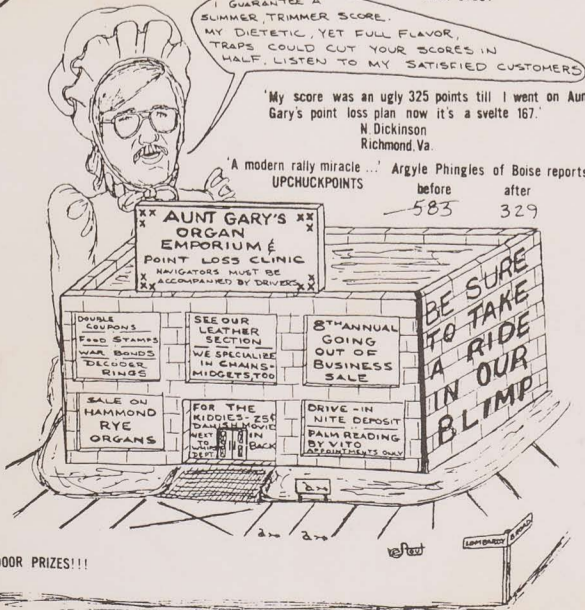 I GUARANTEE A
SLIMMER, TRIMMER SCORE.
MY DIETETIC, YET FULL FLAVOR,
TRAPS COULD CUT YOUR SCORES IN
HALF. LISTEN TO MY SATISFIED CUSTOMERS
'My score was an ugly 325 points till I went on Aun
Gary's point loss plan now it's a svelte 167.'
N. Dickinson
Richmond, Va.
'A modern rally miracle ...' Argyle Phingles of Boise reports
UPCHUCKPOINTS
before after
583 329
AUNT GARY'S
ORGAN
EMPORIUM &
POINT LOSS CLINIC
NAVIGATORS MUST BE
ACCOMPANIED BY DRIVERS
DOUBLE
COUPONS
FOOD STAMPS
WAR BONDS
DECODER
RINGS
SEE OUR
LEATHER
SECTION
WE SPECIALIZE
IN CHAINS-
MIDGETS, TOO
8TH ANNUAL
GOING
OUT OF
BUSINESS
SALE
SALE ON
HAMMOND
RYE
ORGANS
FOR THE
KIDDIES - 25¢
DANISH MOVIE
NEXT IN
TO BACK
DEPT
DRIVE-IN
NITE DEPOSIT
PALM READING
BY VITO
APPOINTMENTS ONLY
BE SURE
TO TAKE
A RIDE
IN OUR
BLIMP
LOMBARDY BROAD
OOR PRIZES!!!